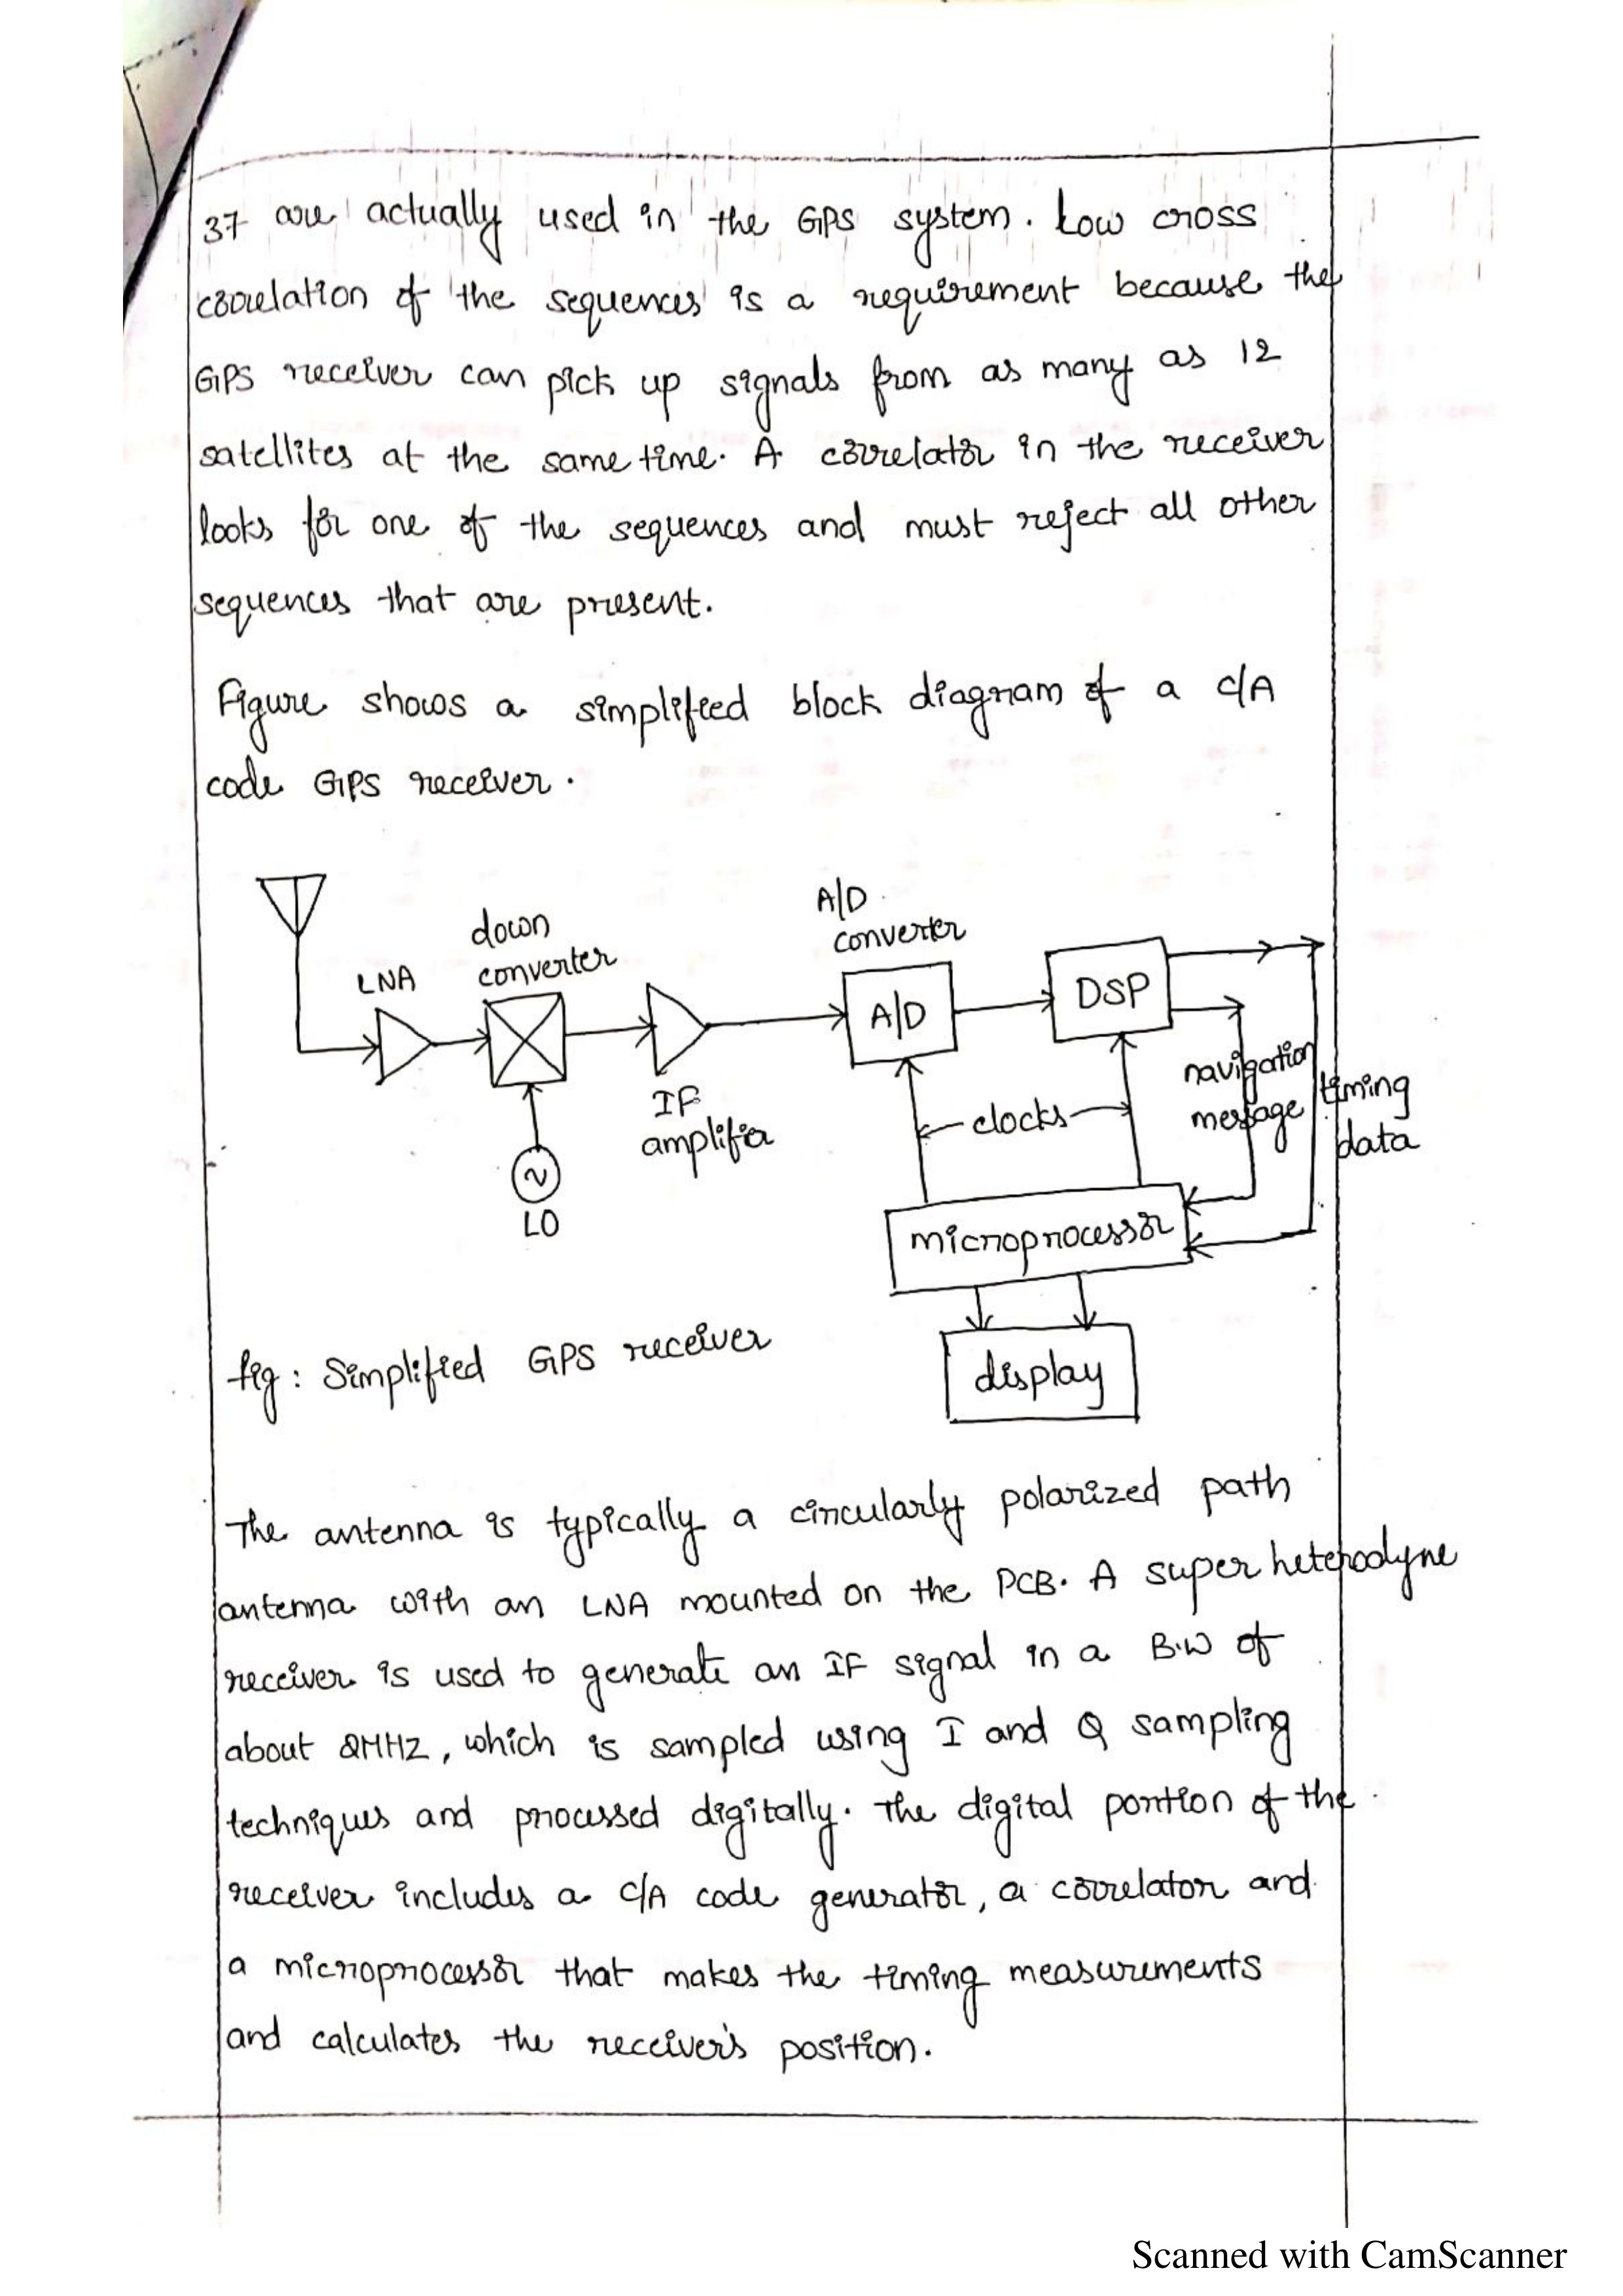 37 are actually used in the GPS system. Low cross
correlation of the sequences is a requirement because the
GPS receiver can pick up signals from as many as 12
satellites at the same time. A correlator in the receiver
looks for one of the sequences and must reject all other
sequences that are present.
Figure shows a simplified block diagram of a C/A
code GPS receiver.
A/D
converter
down
converter
LNA
A/D
DSP
IF
amplifier
clocks
navigation
message
timing
data
LO
microprocessor
display
fig: Simplified GPS receiver
The antenna is typically a circularly polarized path
antenna with an LNA mounted on the PCB. A super heterodyne
receiver is used to generate an IF signal in a B.W of
about 2MHZ, which is sampled using I and Q sampling
techniques and processed digitally. The digital portion of the
receiver includes a C/A code generator, a correlator and
a microprocessor that makes the timing measurements
and calculates the receiver's position.
Scanned with CamScanner